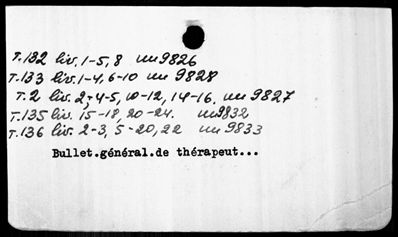 T.132 liv. 1-5, 8 um 9826
T.133 liv. 1-4, 6-10 um 9828
T.2 liv. 2, 4-5, 10-12, 14-16. um 9827
T.135 liv. 15-18, 20-24. um 9832
T.136 liv. 2-3, 5-20, 22 um 9833
Bullet.général.de thérapeut...